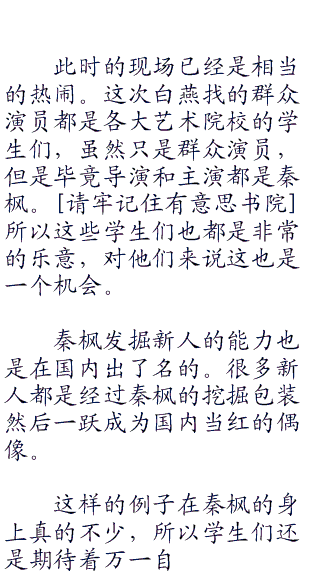 此时的现场已经是相当
的热闹。这次白燕找的群众
演员都是各大艺术院校的学
生们，虽然只是群众演员，
但是毕竟导演和主演都是秦
枫。[请牢记住有意思书院]
所以这些学生们也都是非常
的乐意，对他们来说这也是
一个机会。
秦枫发掘新人的能力也
是在国内出了名的。很多新
人都是经过秦枫的挖掘包装
然后一跃成为国内当红的偶
像。
这样的例子在秦枫的身
上真的不少，所以学生们还
是期待着万一自